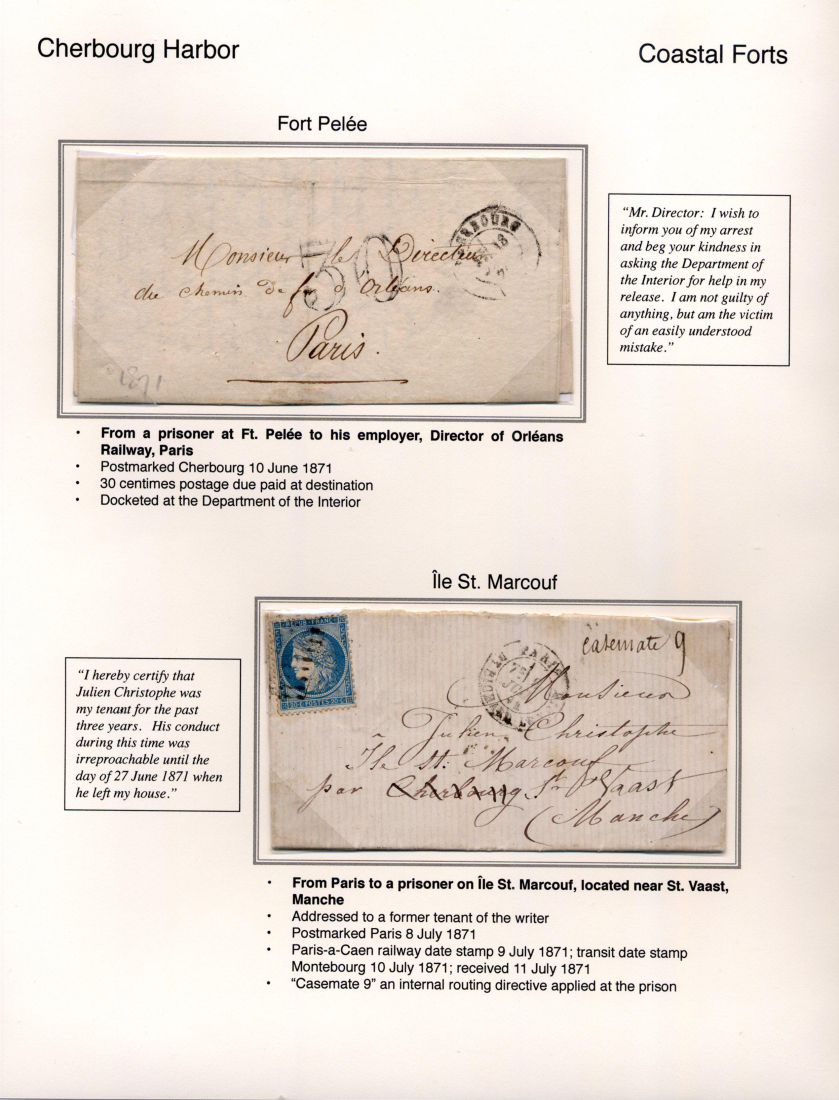 Cherbourg Harbor
Coastal Forts
Fort Pelée
CHERBOURG
18
30
Monsieur le Directeur
du chemin de fer d'Orléans.
Paris.
1871
"Mr. Director: I wish to
inform you of my arrest
and beg your kindness in
asking the Department of
the Interior for help in my
release. I am not guilty of
anything, but am the victim
of an easily understood
mistake."
• From a prisoner at Ft. Pelée to his employer, Director of Orléans
Railway, Paris
• Postmarked Cherbourg 10 June 1871
• 30 centimes postage due paid at destination
• Docketed at the Department of the Interior
Île St. Marcouf
"I hereby certify that
Julien Christophe was
my tenant for the past
three years. His conduct
during this time was
irreproachable until the
day of 27 June 1871 when
he left my house."
REPUB. FRANC.
20 C POSTES 20 C
PARIS
casemate 9
Monsieur
Julien Christophe
Ile St. Marcouf
par Cherbourg St Vaast
(Manche)
• From Paris to a prisoner on Île St. Marcouf, located near St. Vaast,
Manche
• Addressed to a former tenant of the writer
• Postmarked Paris 8 July 1871
• Paris-a-Caen railway date stamp 9 July 1871; transit date stamp
Montebourg 10 July 1871; received 11 July 1871
• "Casemate 9" an internal routing directive applied at the prison